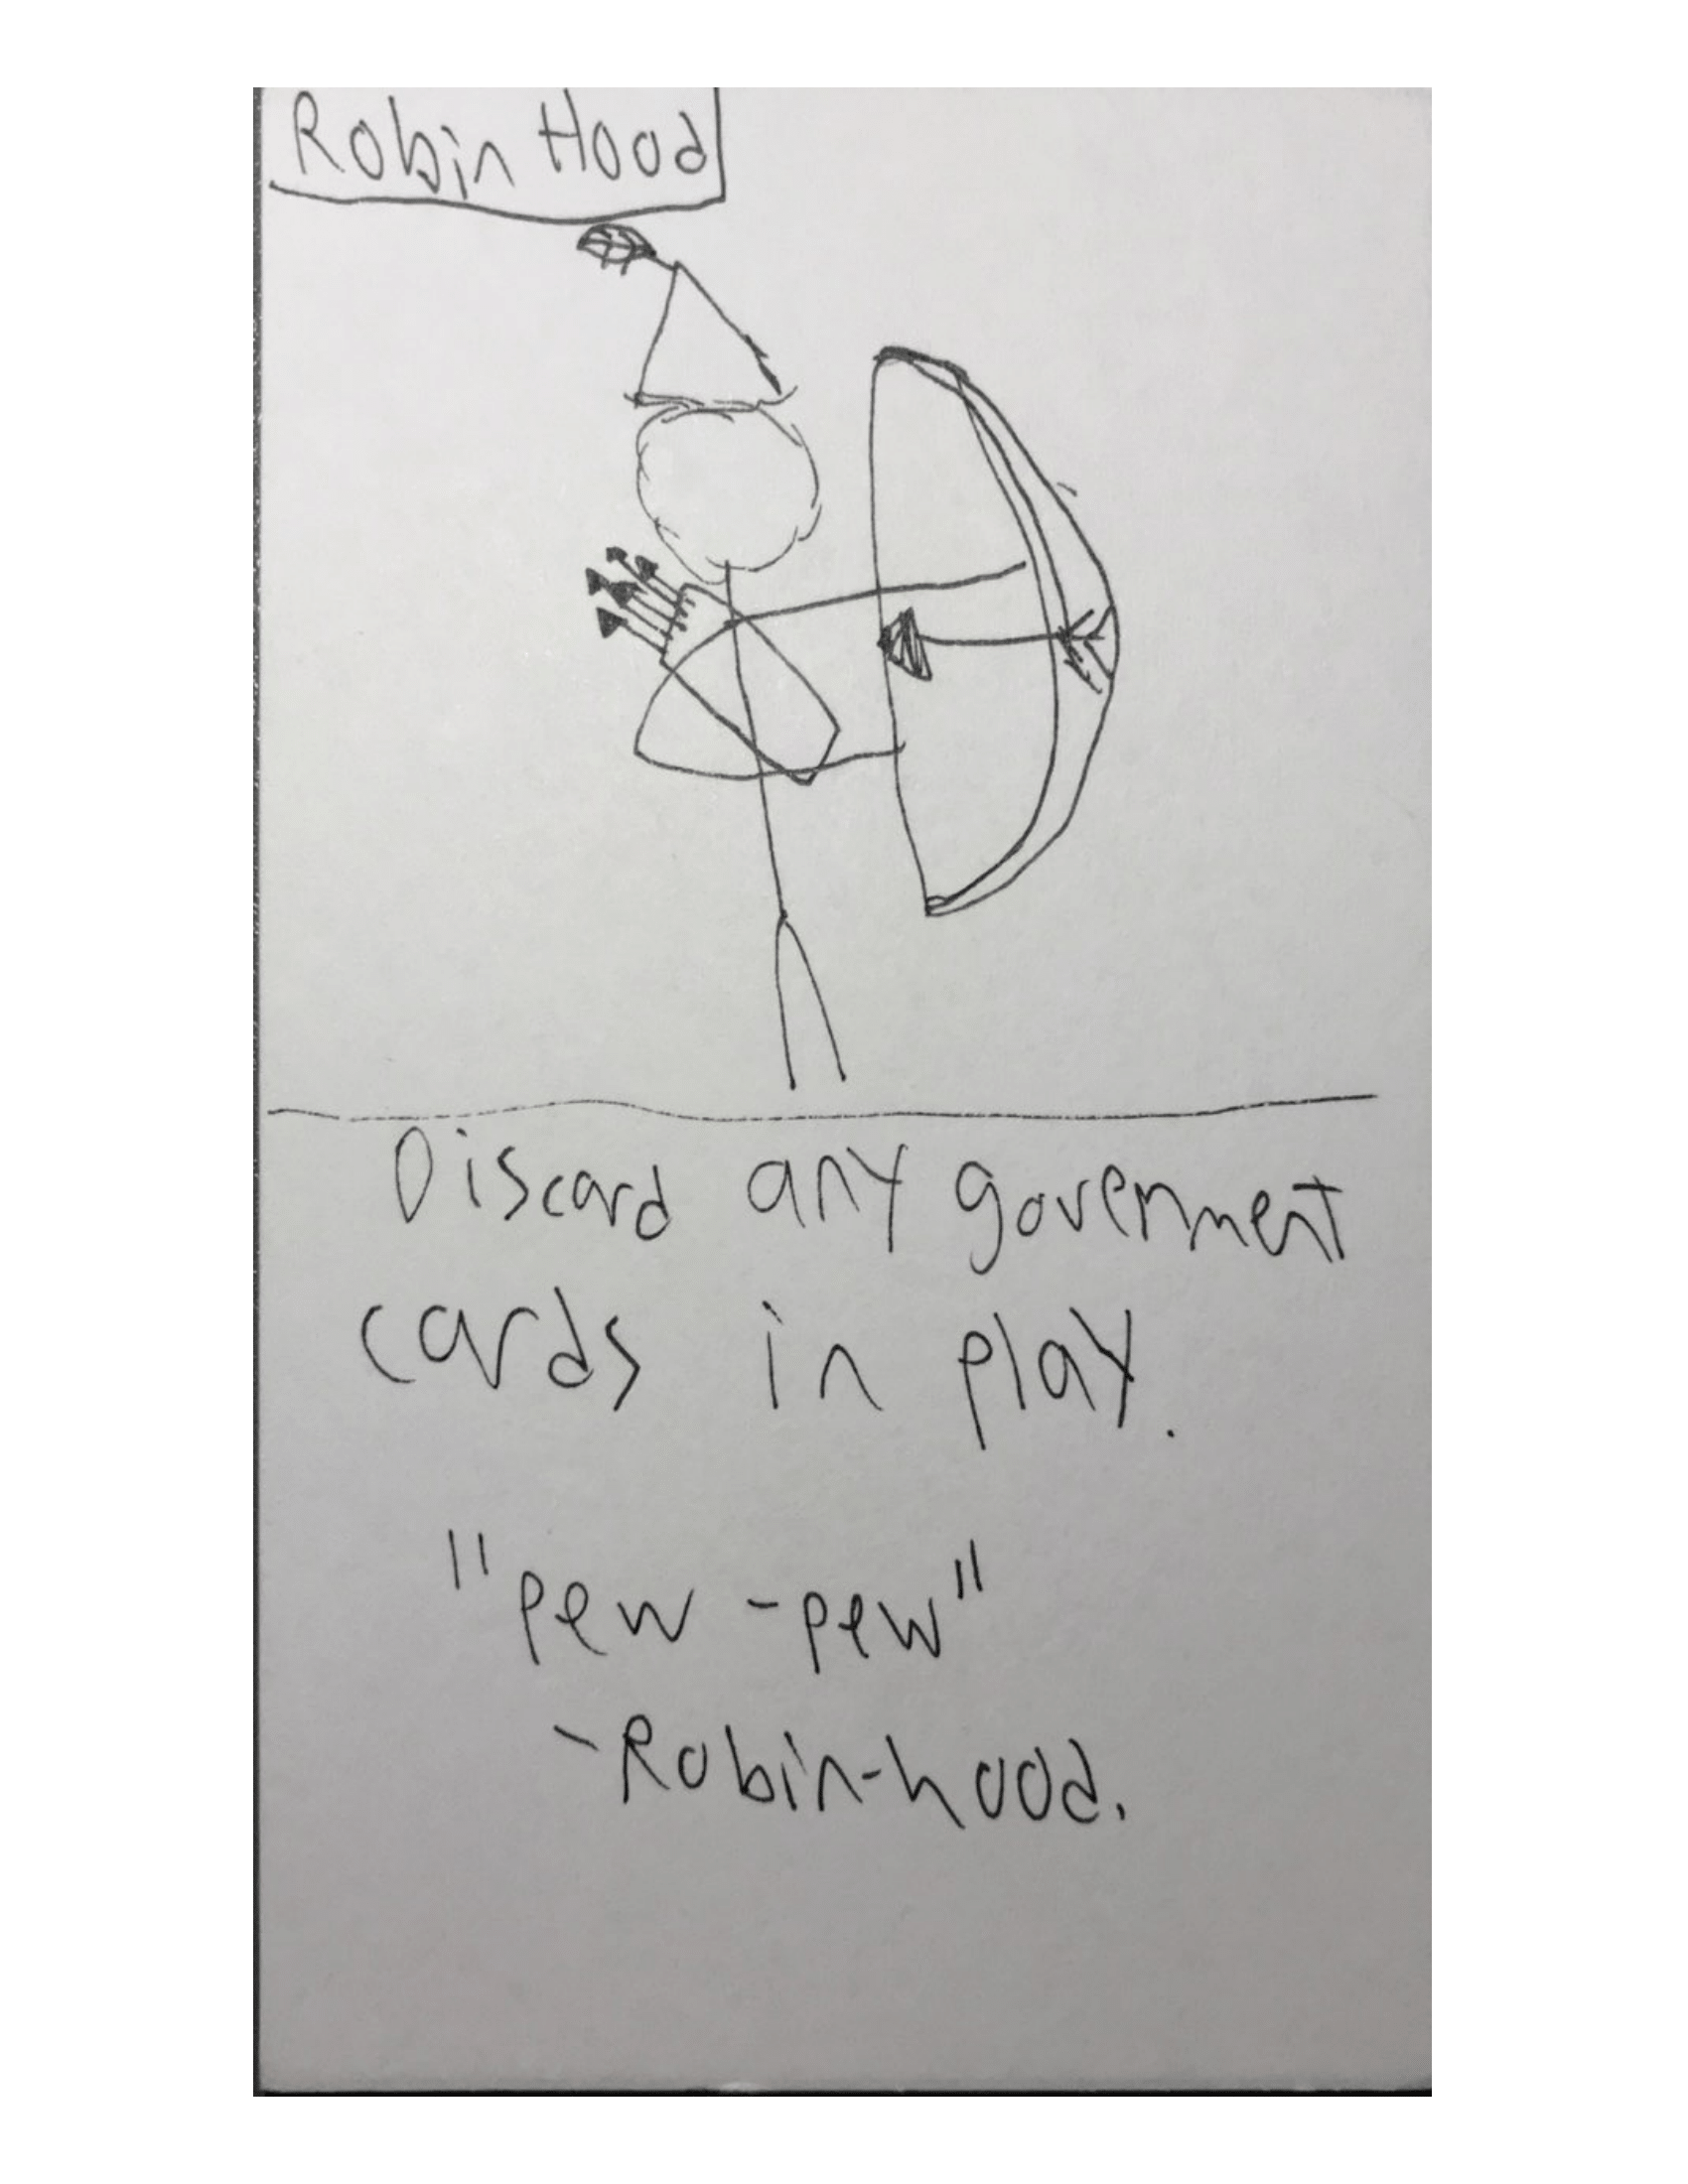 Robin Hood
Discard any government
cards in play.
"pew-pew"
-Robin-hood.